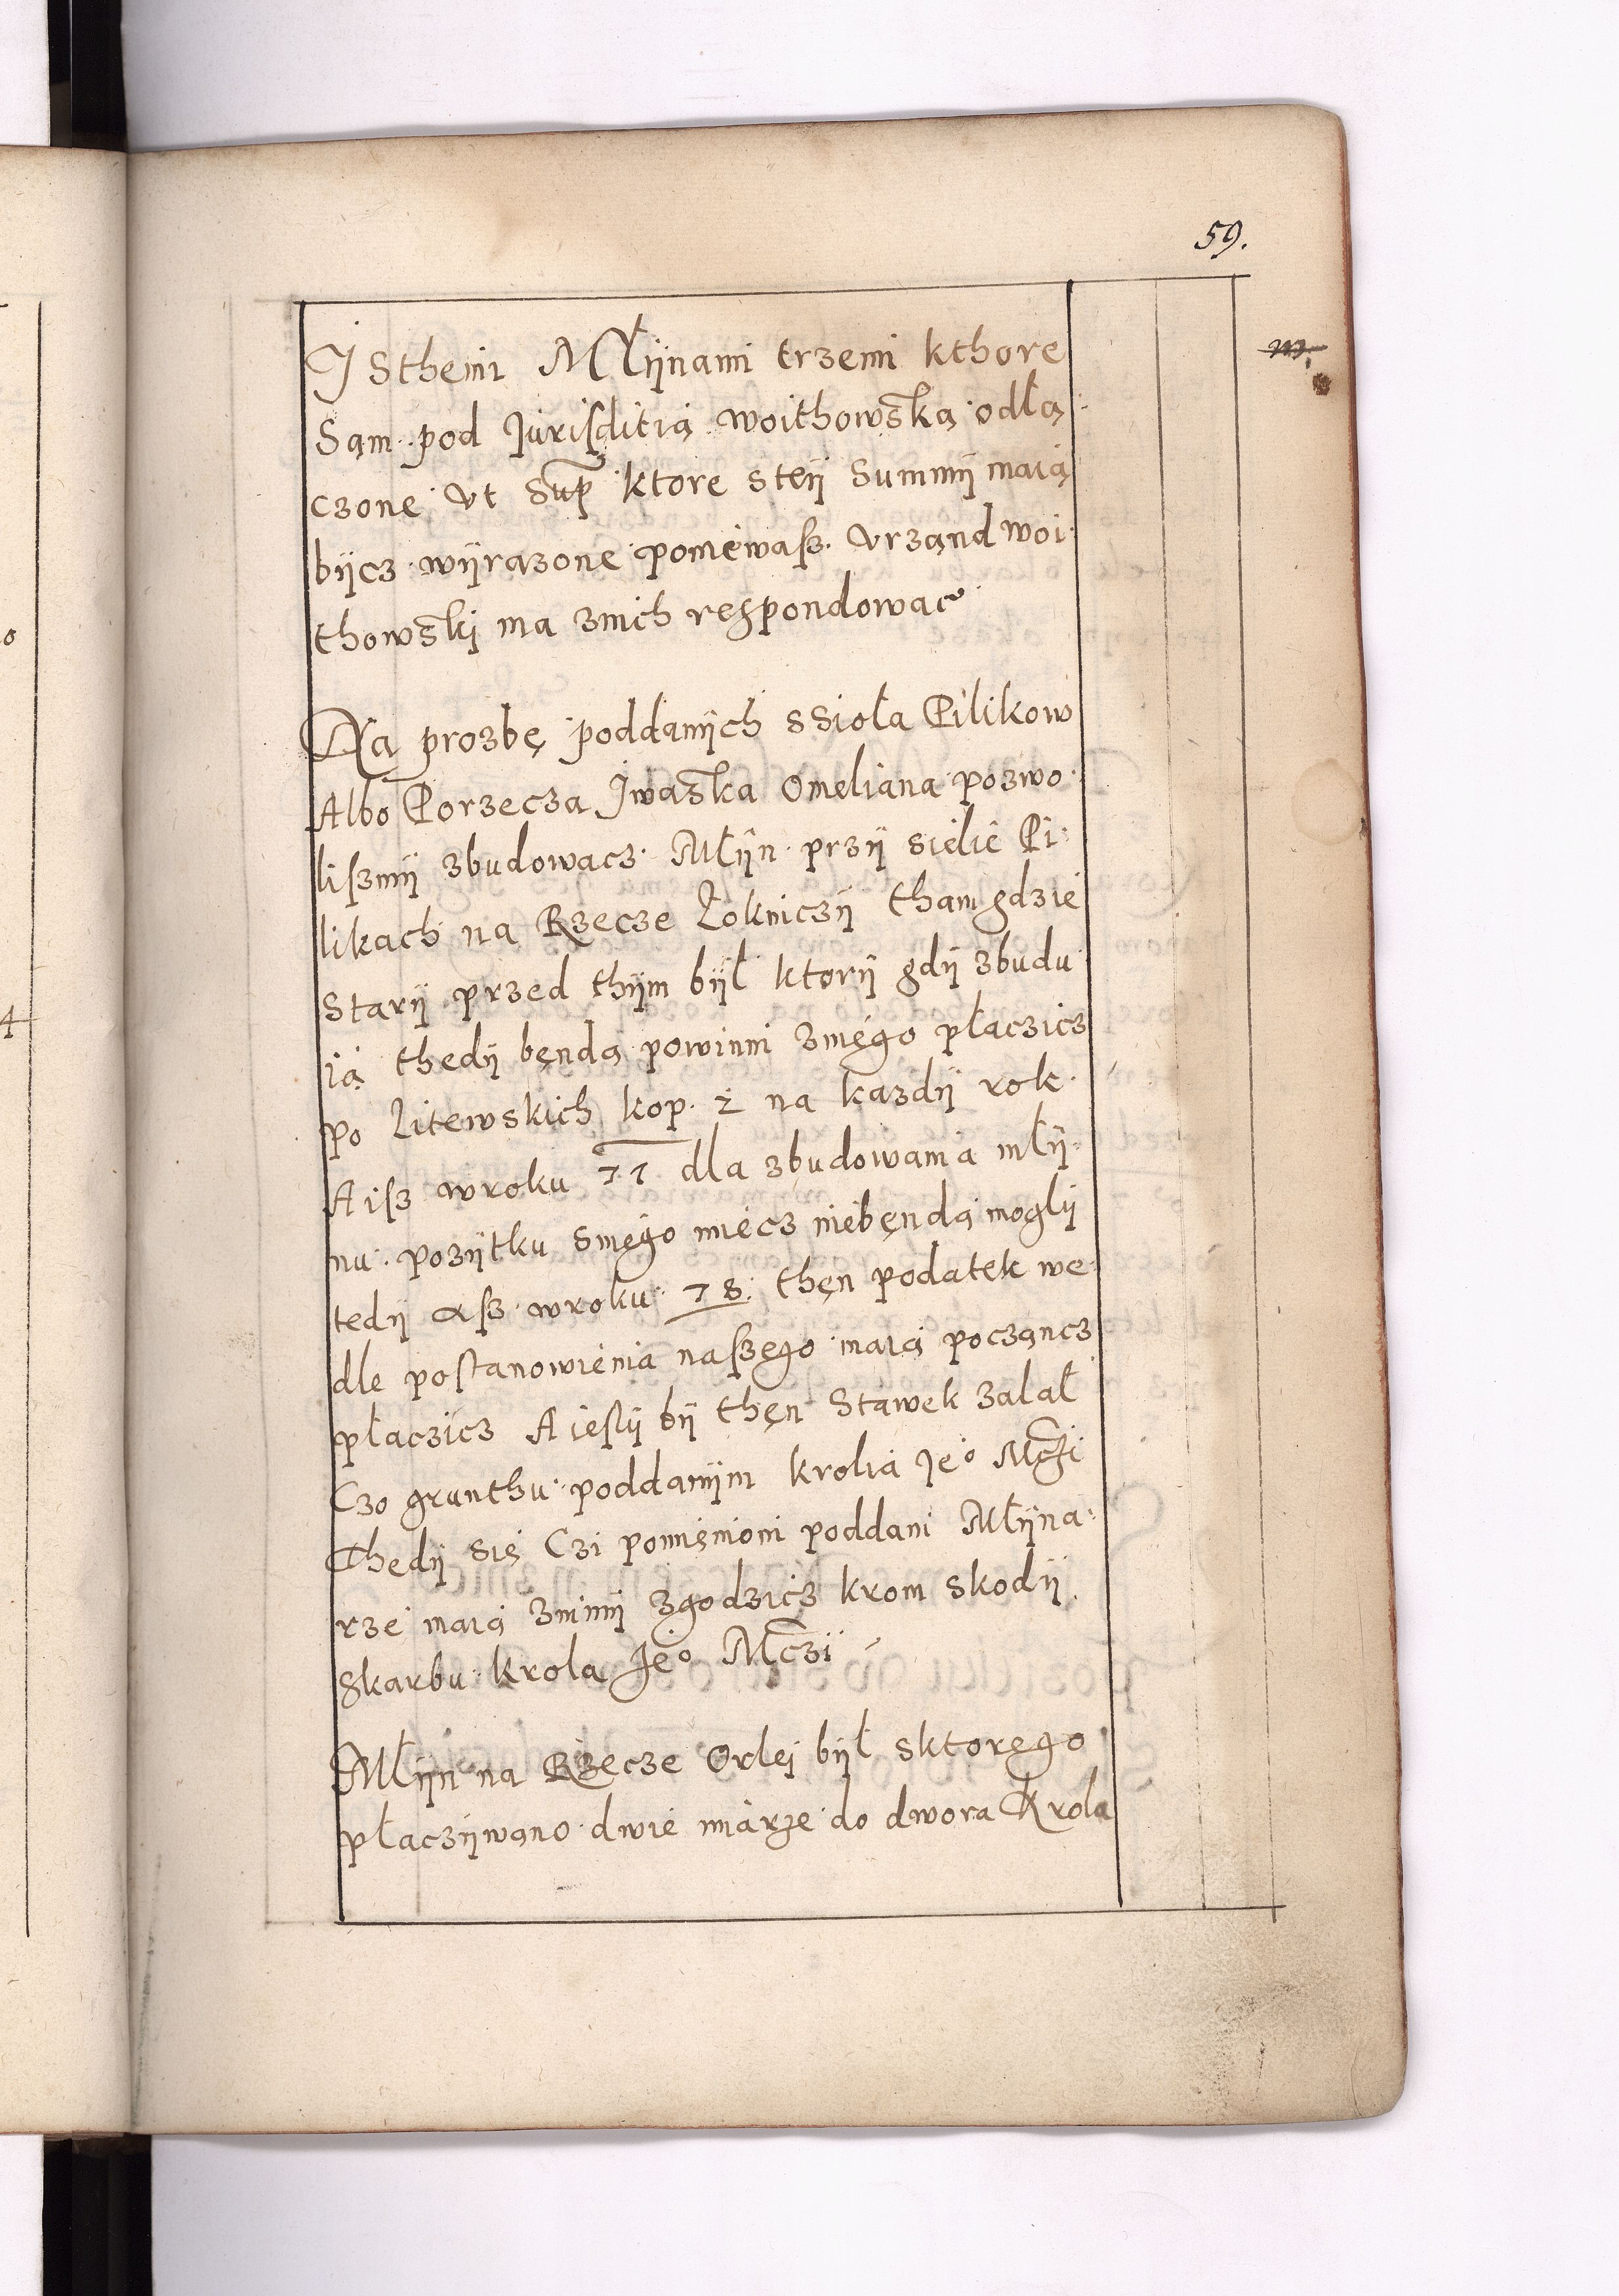 59.
m.
J Sthemi Młÿnami trzemi kthore
Sąm pod Juriſditią woithowską odłą:
czone vt Sup ktore steÿ Summÿ maią
bÿcz wÿrazone poniewaſz vrząnd woi
thowskj ma znich respondowac
Na prozbę poddanÿch ssioła Pilikow
Albo Porzecza Jwaska Omeliana pozwo:
liſzmÿ zbudowacz Młÿn przÿ siele Pi:
likach na Rzecze Łokniczÿ tham gdzie
Starÿ przed thÿm bÿł ktorÿ gdÿ zbudu
ią thedÿ będą powinni znięgo płaczicz
po Litewskich kop. 2 na kazdÿ rok
A iſz wroku 77 dla zbudowania młÿ:
nu pozÿtku snięgo miecz niebęndą moglÿ
tedÿ aſz wroku 78. thęn podatek we
dle poſtanowienia naſzęgo maią począncz
płaczicz A ieſlÿ bÿ thęn Stawek zalał
Czo grunthu poddanÿm krolia Jeº Mczi
Thedÿ się Czi pomięnioni poddani Młÿna:
rze maią znimÿ zgodzicz krom skodÿ
Skarbu krola Jeº Mczÿ
Młÿn na Rzecze Orlej bÿł sktoręgo
płaczÿwąno dwie miarze do dwora Krola